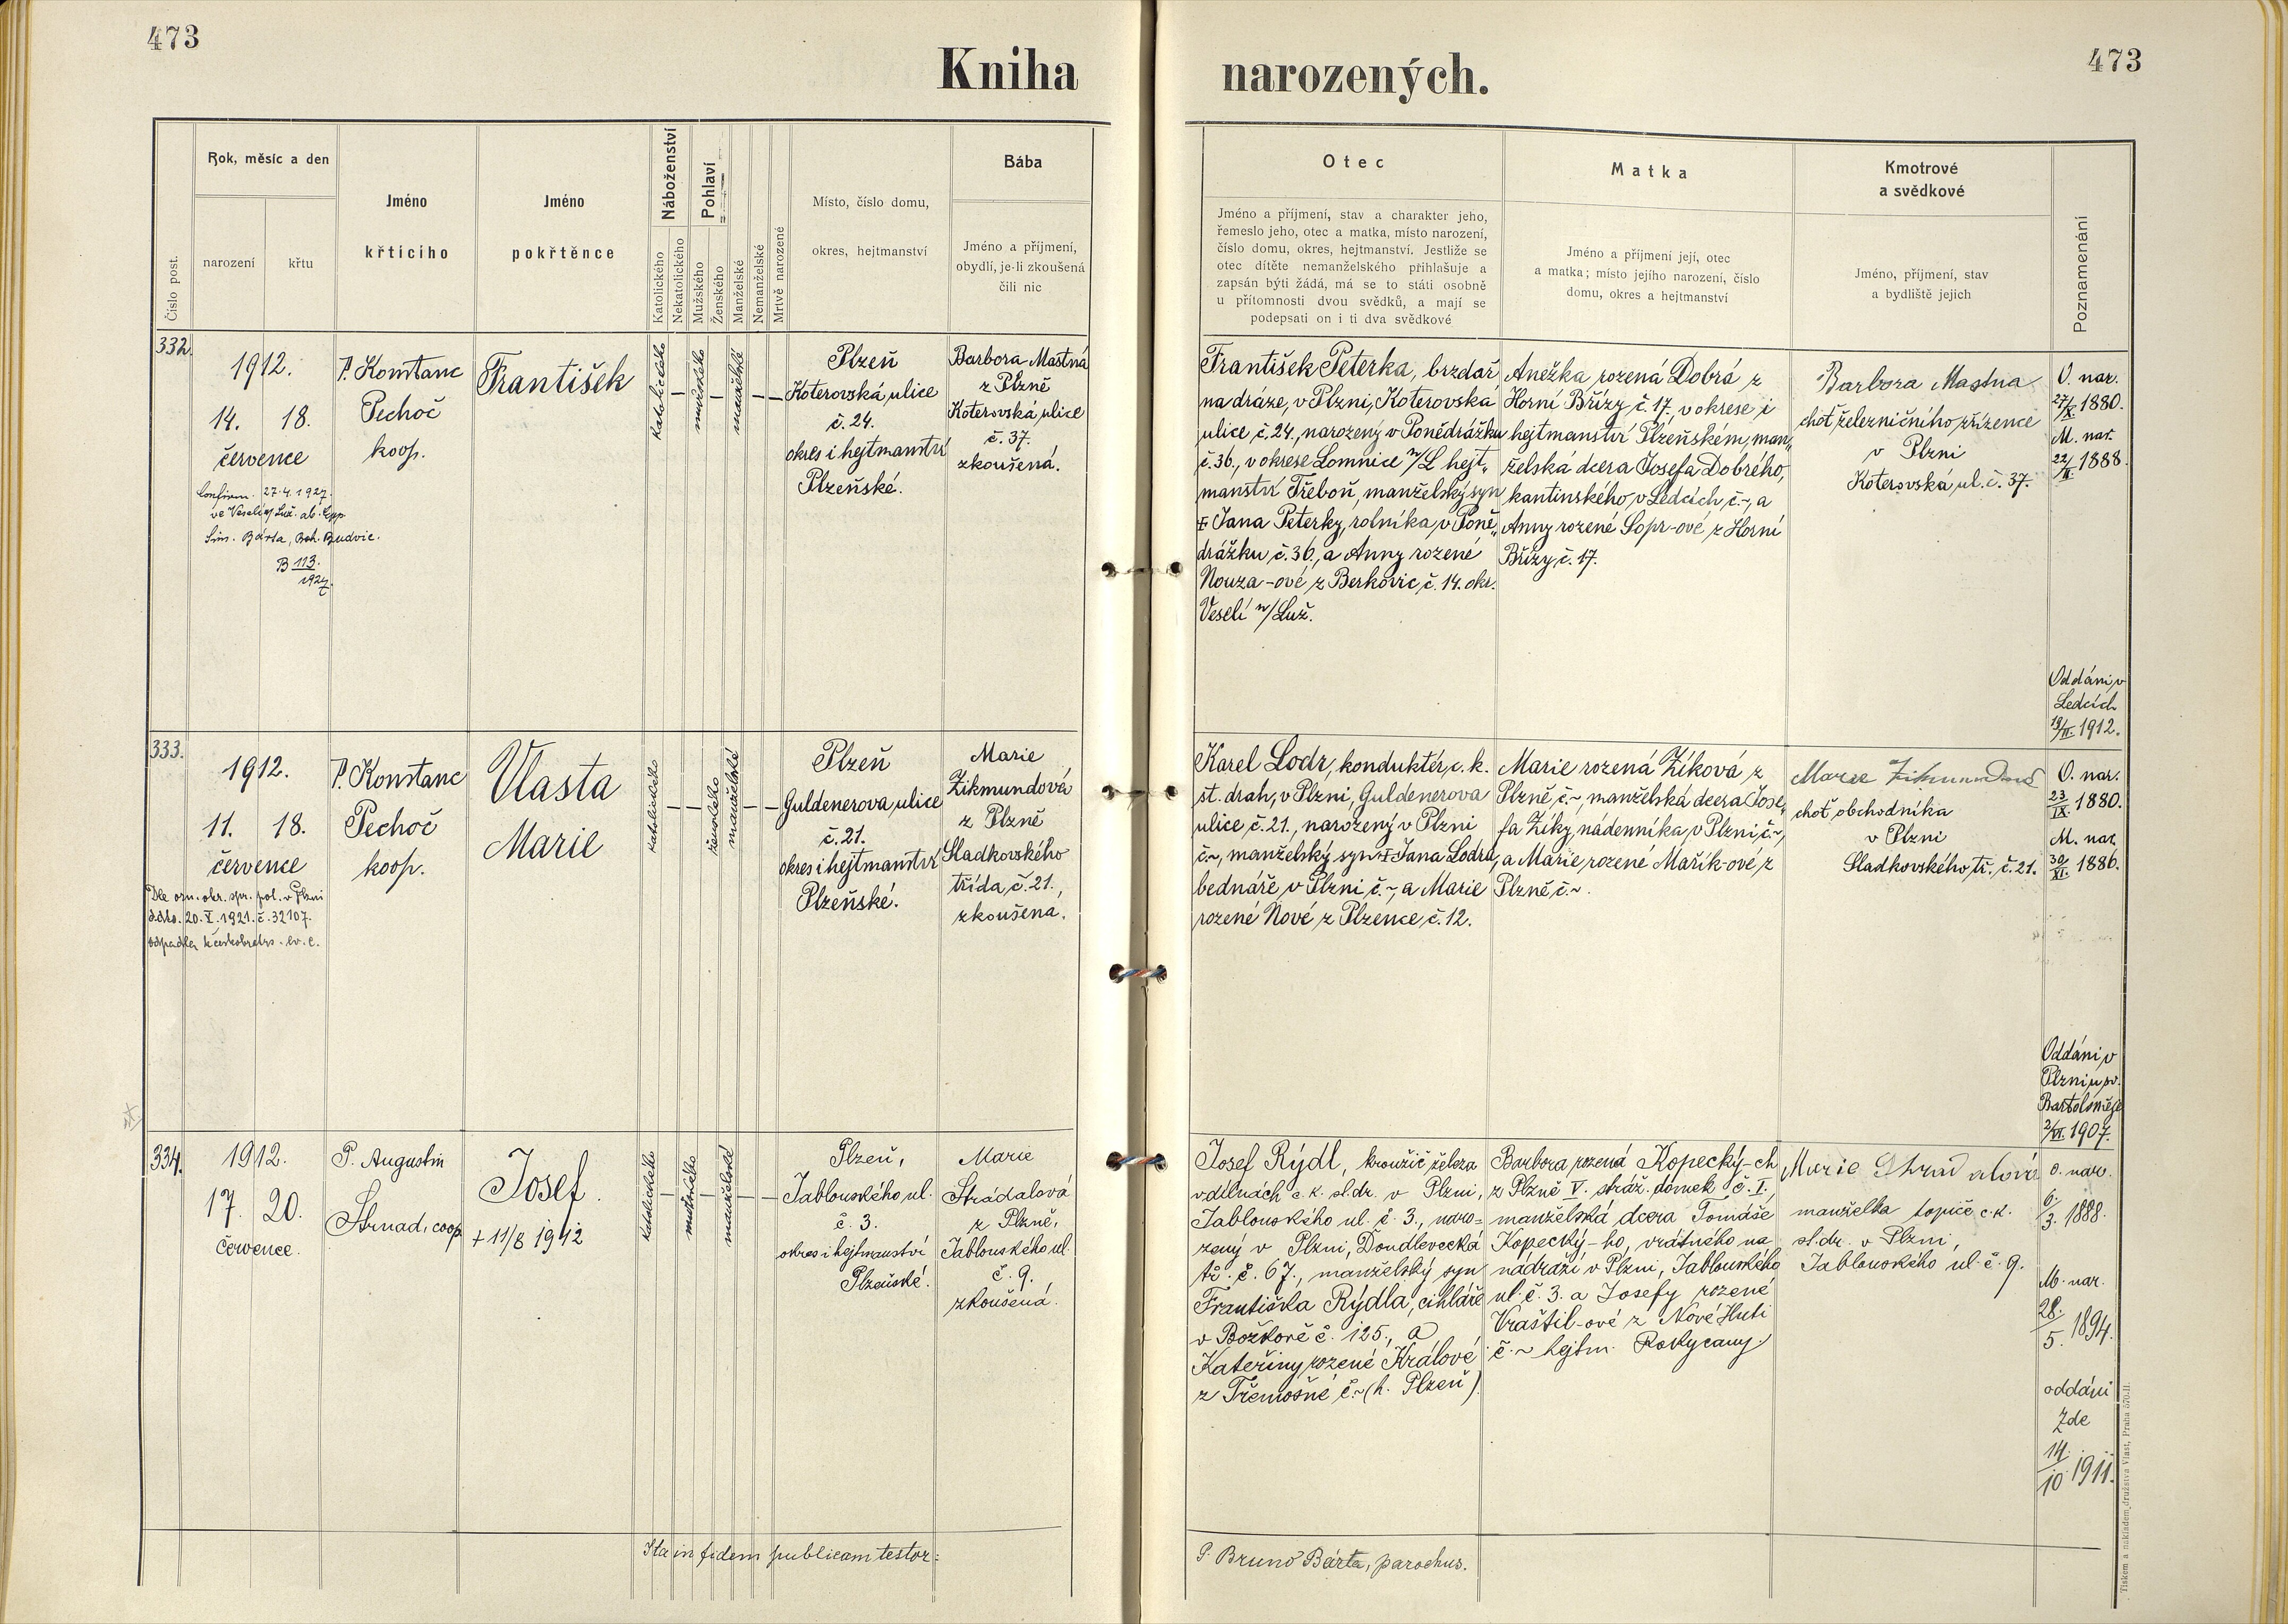 473
Kniha narozených.
473
Číslo post.
Rok, měsíc a den
narození
křtu
Jméno
křticího
Jméno
pokřtěnce
Náboženství
Katolického
Nekatolického
Pohlaví
Mužského
Ženského
Manželské
Nemanželské
Mrtvě narozené
Místo, číslo domu,
okres, hejtmanství
Bába
Jméno a příjmení,
obydlí, je-li zkoušená
čili nic
Otec
Jméno a příjmení, stav a charakter jeho,
řemeslo jeho, otec a matka, místo narození,
číslo domu, okres, hejtmanství. Jestliže se
otec dítěte nemanželského přihlašuje a
zapsán býti žádá, má se to státi osobně
u přítomnosti dvou svědků, a mají se
podepsati on i ti dva svědkové
Matka
Jméno a příjmení její, otec
a matka; místo jejího narození, číslo
domu, okres a hejtmanství
Kmotrové
a svědkové
Jméno, příjmení, stav
a bydliště jejich
Poznamenání
332.
1912.
14. 18.
července
Confirm. 27.4.1927.
ve Veselí n/Luž. ab Epp
Sim. Bárta, Boh. Budvic.
B 113.
1927.
P. Konstanc
Pechoč
koop.
František
katolického
–
mužského
–
manželské
–
–
Plzeň
Koterovská ulice
č. 24.
okres i hejtmanství
Plzeňské.
Barbora Mastná
z Plzně
Koterovská ulice
č. 37.
zkoušená.
František Peterka, brzdař
na dráze, v Plzni, Koterovská
ulice č. 24., narozený v Ponědrážku
č. 36., v okrese Lomnice n/L hejt„
manství Třeboň, manželský syn
‡ Jana Peterky, rolníka, v Poně„
drážku č. 36., a Anny rozené
Nouza-ové z Berkovic, č. 14. okr.
Veselí n/Luž.
Anežka rozená Dobrá z
Horní Břízy č. 17. v okrese i
hejtmanství Plzeňském, man„
želská dcera Josefa Dobrého,
kantinského, v Ledcích, č. ~, a
Anny rozené Sopr-ové z Horní
Břízy, č. 17.
Barbora Mastna
choť železničního zřízence
v Plzni
Koterovská ul. č. 37.
O. nar.
27/X. 1880.
M. nar.
22/II 1888.
Oddáni v
Ledcích
19/II. 1912.
333.
1912.
11. 18.
července
Dle ozn. okr. spr. pol. v Plzni
ddto. 20.V.1921. č. 32107.
odpadla k českobratrs. ev. c.
P. Konstanc
Pechoč
koop.
Vlasta
Marie
katolického
–
–
ženského
manželské
–
–
Plzeň
Guldenerova ulice
č. 21.
okres i hejtmanství
Plzeňské.
Marie
Zikmundová
z Plzně
Sladkovského
třída č. 21.,
zkoušená.
Karel Lodr, konduktér, c. k.
st. drah, v Plzni, Guldenerova
ulice č. 21., narozený v Plzni
č. ~, manželský syn ‡ Jana Lodra,
bednáře v Plzni č. ~, a Marie
rozené Nové z Plzence č. 12.
Marie rozená Zíková z
Plzně č. ~, manželská dcera Jose„
fa Zíky, nádenníka, v Plzni č. ~,
a Marie rozené Mařík-ové z
Plzně č. ~.
Marie Zikmundová
choť obchodníka
v Plzni
Sladkovského tř. č. 21.
O. nar.
23/IX. 1880.
M. nar.
30/XI. 1886.
Oddáni v
Plzni u sv.
Bartoloměje
2/VI. 1907.
334.
1912.
17. 20.
července.
P. Augustin
Strnad, coop.
Josef.
+ 11/8 1942
katolického
–
mužského
–
manželské
–
–
Plzeň,
Jablonského ul.
č. 3.
okres i hejtmanství
Plzeňské.
Marie
Strádalová
z Plzně,
Jablonského ul.
č. 9.,
zkoušená.
Josef Rýdl, kroužič železa
v dílnách c. k. st. dr. v Plzni,
Jablonského ul. č. 3., naro=
zený v Plzni, Doudlevecká
tř. č. 67., manželský syn
Františka Rýdla, cihláře
v Božkově č. 125., a
Kateřiny rozené Králové
z Třemošné č. ~ (h. Plzeň)
Barbora rozená Kopecký-ch
z Plzně V. stráž. domek č. I.,
manželská dcera Tomáše
Kopecký-ho, vrátného na
nádraží v Plzni, Jablonského
ul. č. 3. a Josefy rozené
Vraštil-ové z Nové Huti
č. ~ hejtm. Rokycany
Marie Strádalová
manželka topiče c. k.
st. dr. v Plzni,
Jablonského ul. č. 9.
O. nar.
6/3. 1888.
M. nar.
28./5. 1894.
oddáni
zde
14./10 1911.
Ita in fidem publicam testor:
P. Bruno Bárta, parochus.
Tiskem a nakladem družstva Vlast, Praha 570-II.